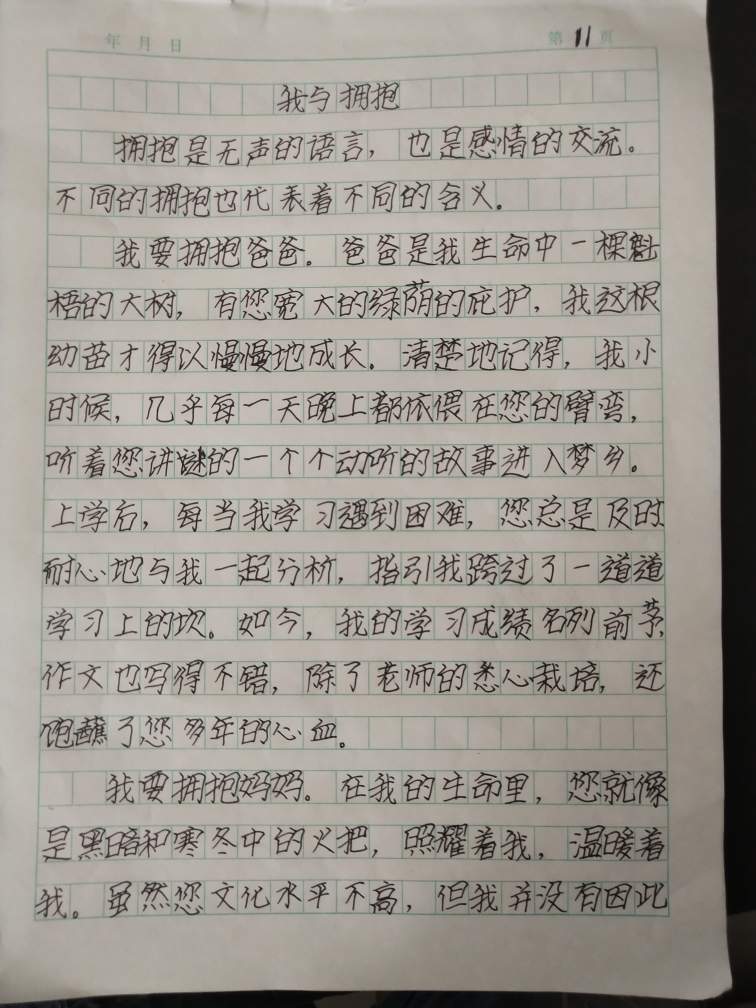 年 月 日 第 11 页
我与拥抱
拥抱是无声的语言，也是感情的交流。
不同的拥抱也代表着不同的含义。
我要拥抱爸爸。爸爸是我生命中一棵魁
梧的大树，有您宽大的绿荫的庇护，我这根
幼苗才得以慢慢地成长。清楚地记得，我小
时候，几乎每一天晚上都依偎在您的臂弯，
听着您讲谜的一个个动听的故事进入梦乡。
上学后，每当我学习遇到困难，您总是及时
耐心地与我一起分析，指引我跨过了一道道
学习上的坎。如今，我的学习成绩名列前茅，
作文也写得不错，除了老师的悉心栽培，还
饱蘸了您多年的心血。
我要拥抱妈妈。在我的生命里，您就像
是黑暗和寒冬中的火把，照耀着我，温暖着
我。虽然您文化水平不高，但我并没有因此